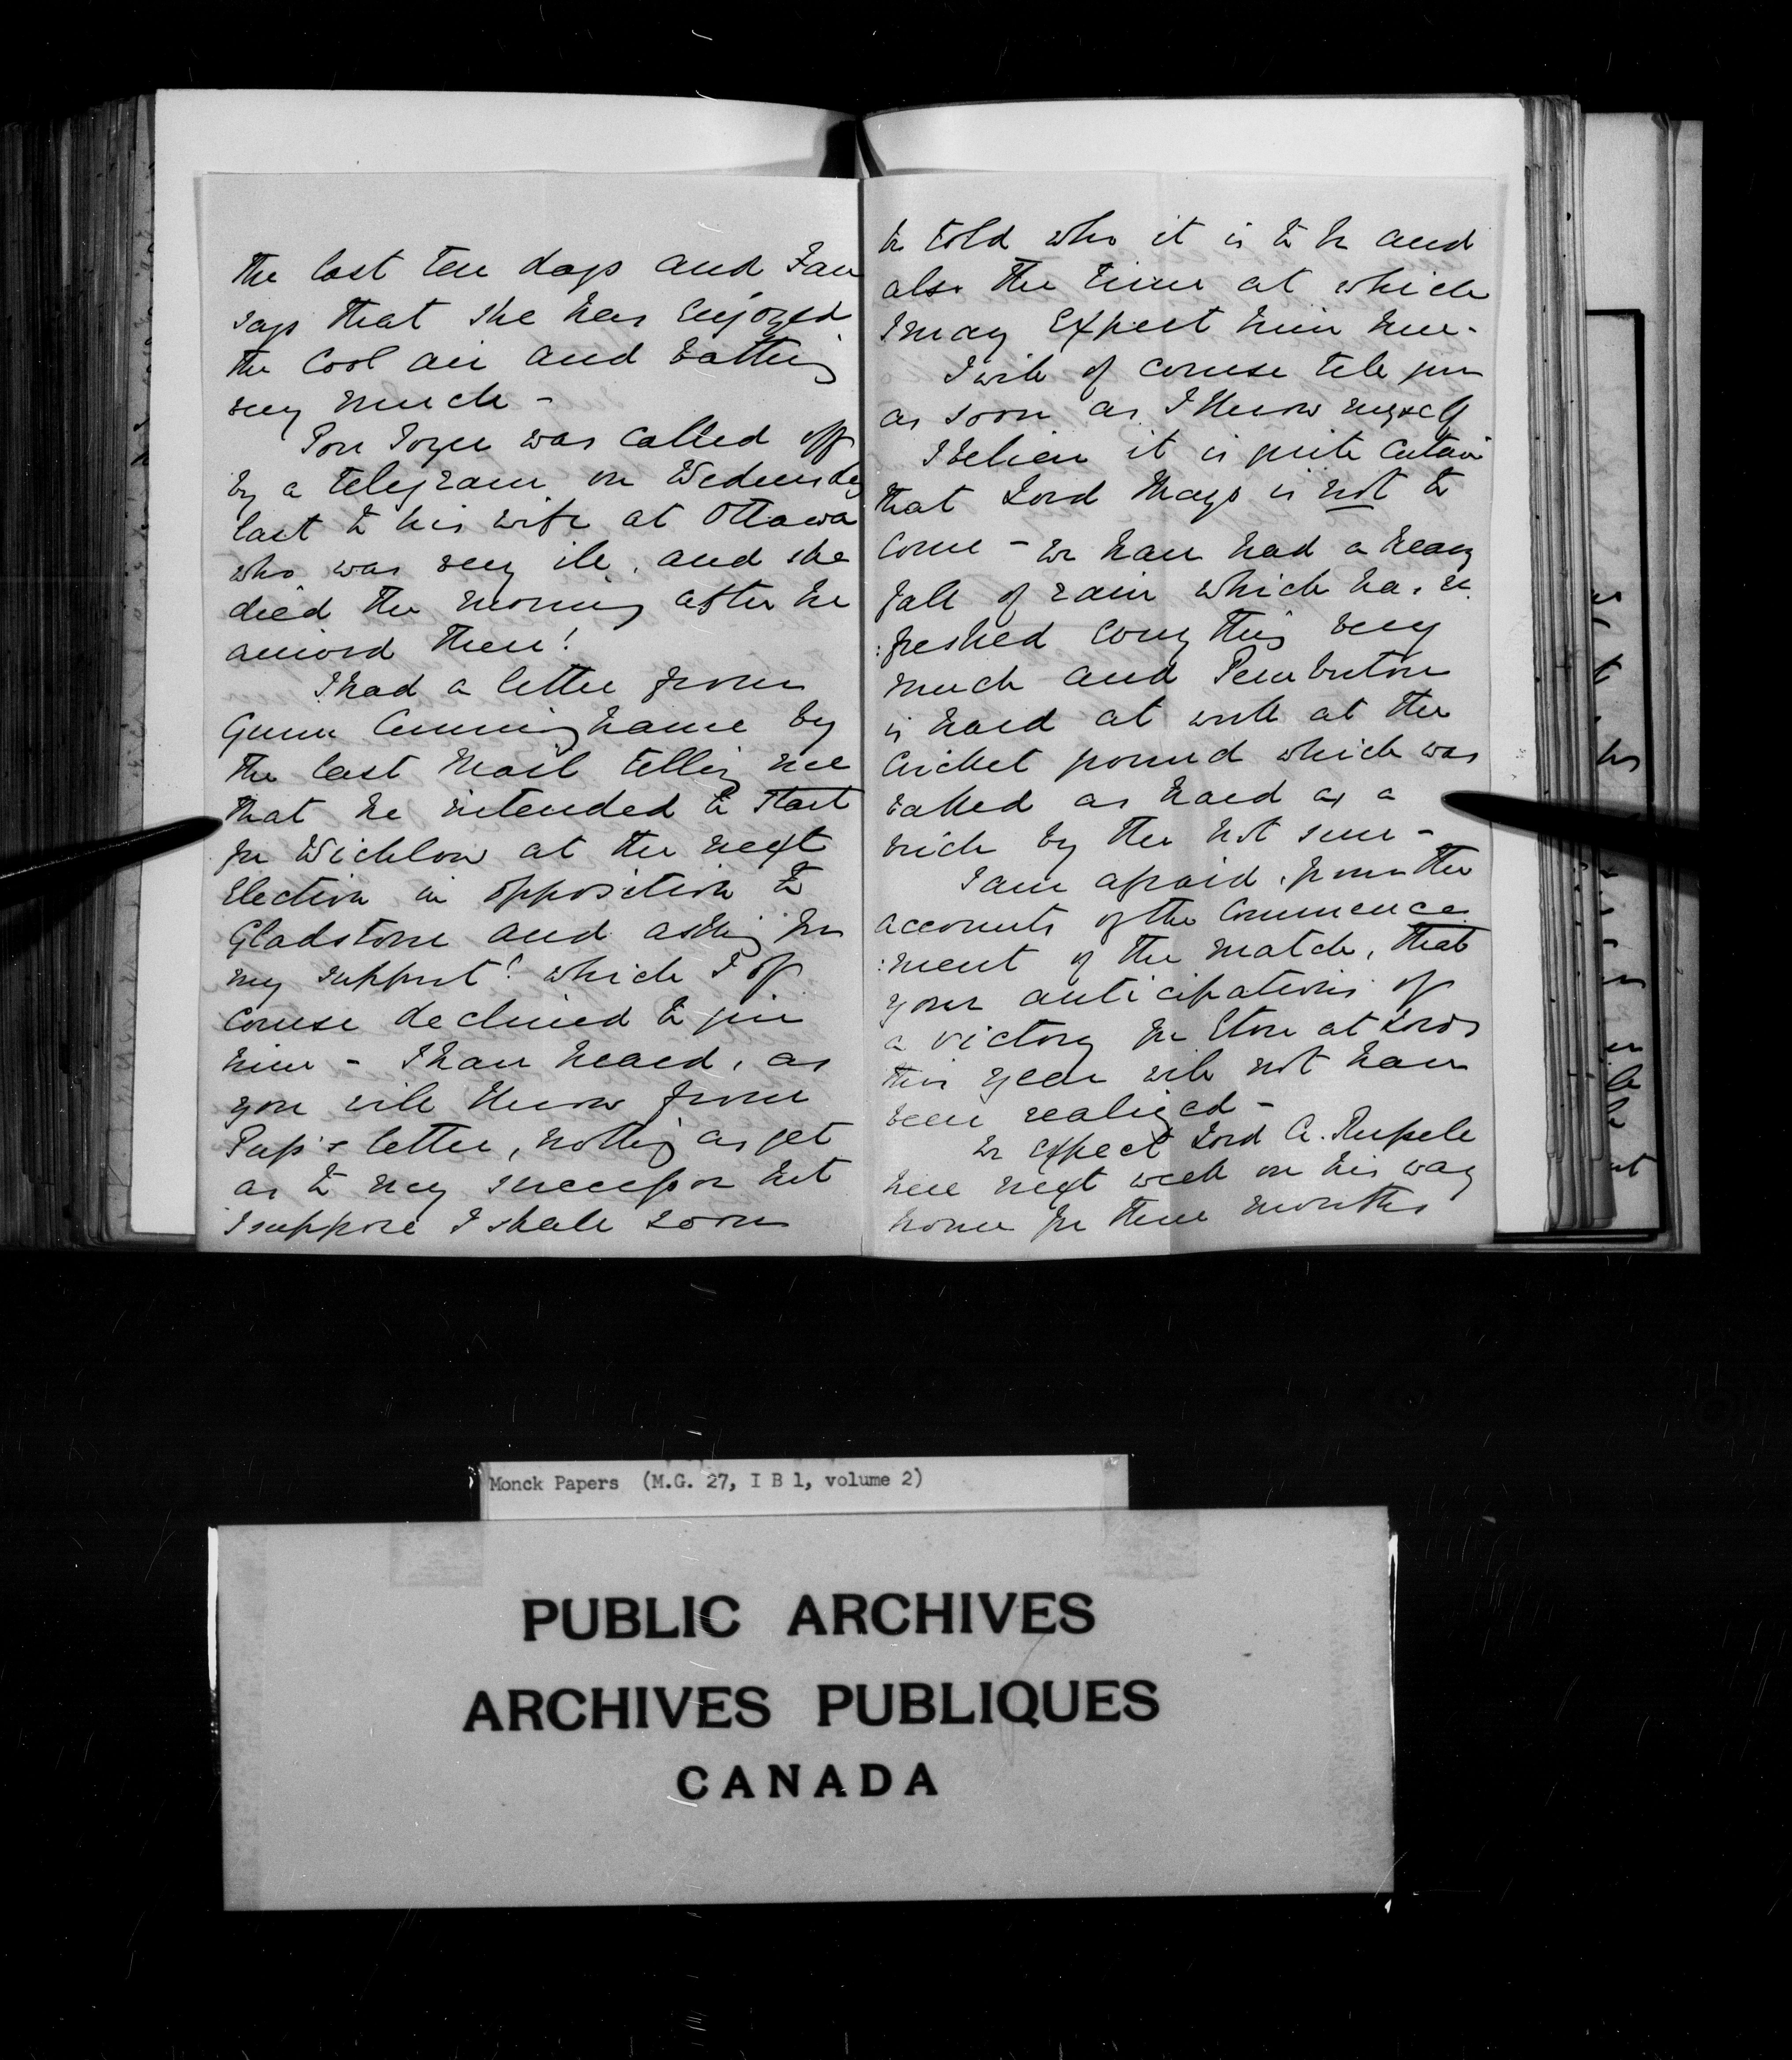 the last ten days and Fan
says that she has enjoyed
the cool air and bathing
very much -
Poor Joyce was called off
by a telegram on Wednesday
last to his wife at Ottawa
who was very ill, and she
died the morning after he
arrived there!
I had a letter from
Gunn Cunninghame by
the last Mail telling me
that he intended to start
for Wicklow at the next
election in opposition to
Gladstone and asking for
my support! which I of
course declined to give
him - I have heard, as
you will know from
Pup's letter, nothing as yet
as to my successor but
I suppose I shall soon
be told who it is to be and
also the time at which
I may expect him here -
I will of course tell you
as soon as I know myself
I believe it is quite certain
that Lord Mayo is not to
come - We have had a heavy
fall of rain which has re
:freshed every thing very
much and Pemberton
is hard at work at the
cricket ground which was
baked as hard as a
brick by the hot sun -
I am afraid, from the
accounts of the commence
:ment of the match, that
your anticipations of
a victory for Eton at Lords
this year will not have
been realized -
We expect Lord A. Russell
here next week on his way
home for three months
Monck Papers (M.G. 27, I B 1, volume 2)
PUBLIC ARCHIVES
ARCHIVES PUBLIQUES
CANADA